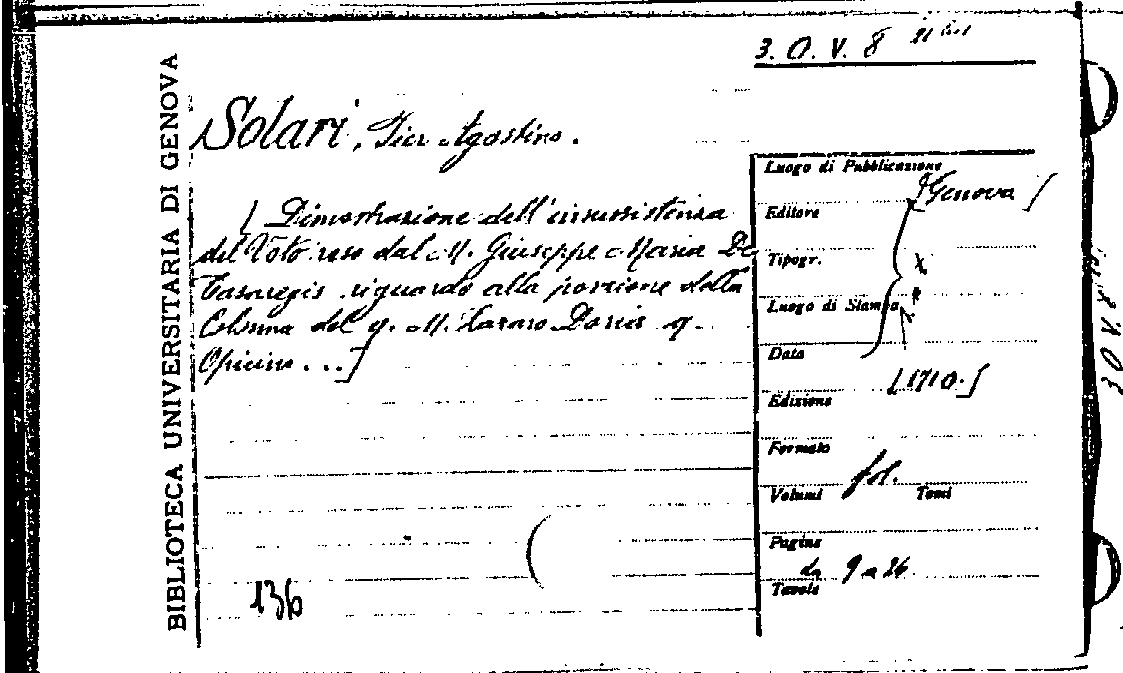 3. O. V. 8
BIBLIOTECA UNIVERSITARIA DI GENOVA
Solari, Pier Agostino.
[Dimostrazione dell'insussistenza
del Voto reso dal M. Giuseppe Maria De
Casaregis riguardo alla porzione della
Colonna del q. M. Lazaro Doria q.
Opicino ...]
136
Luogo di Pubblicazione
[Genova]
Editore
Tipogr.
Luogo di Stampa
Data
[1710.]
Edizione
Formato
fol.
Volumi Tomi
Pagine
da 9 a 26
Tavole